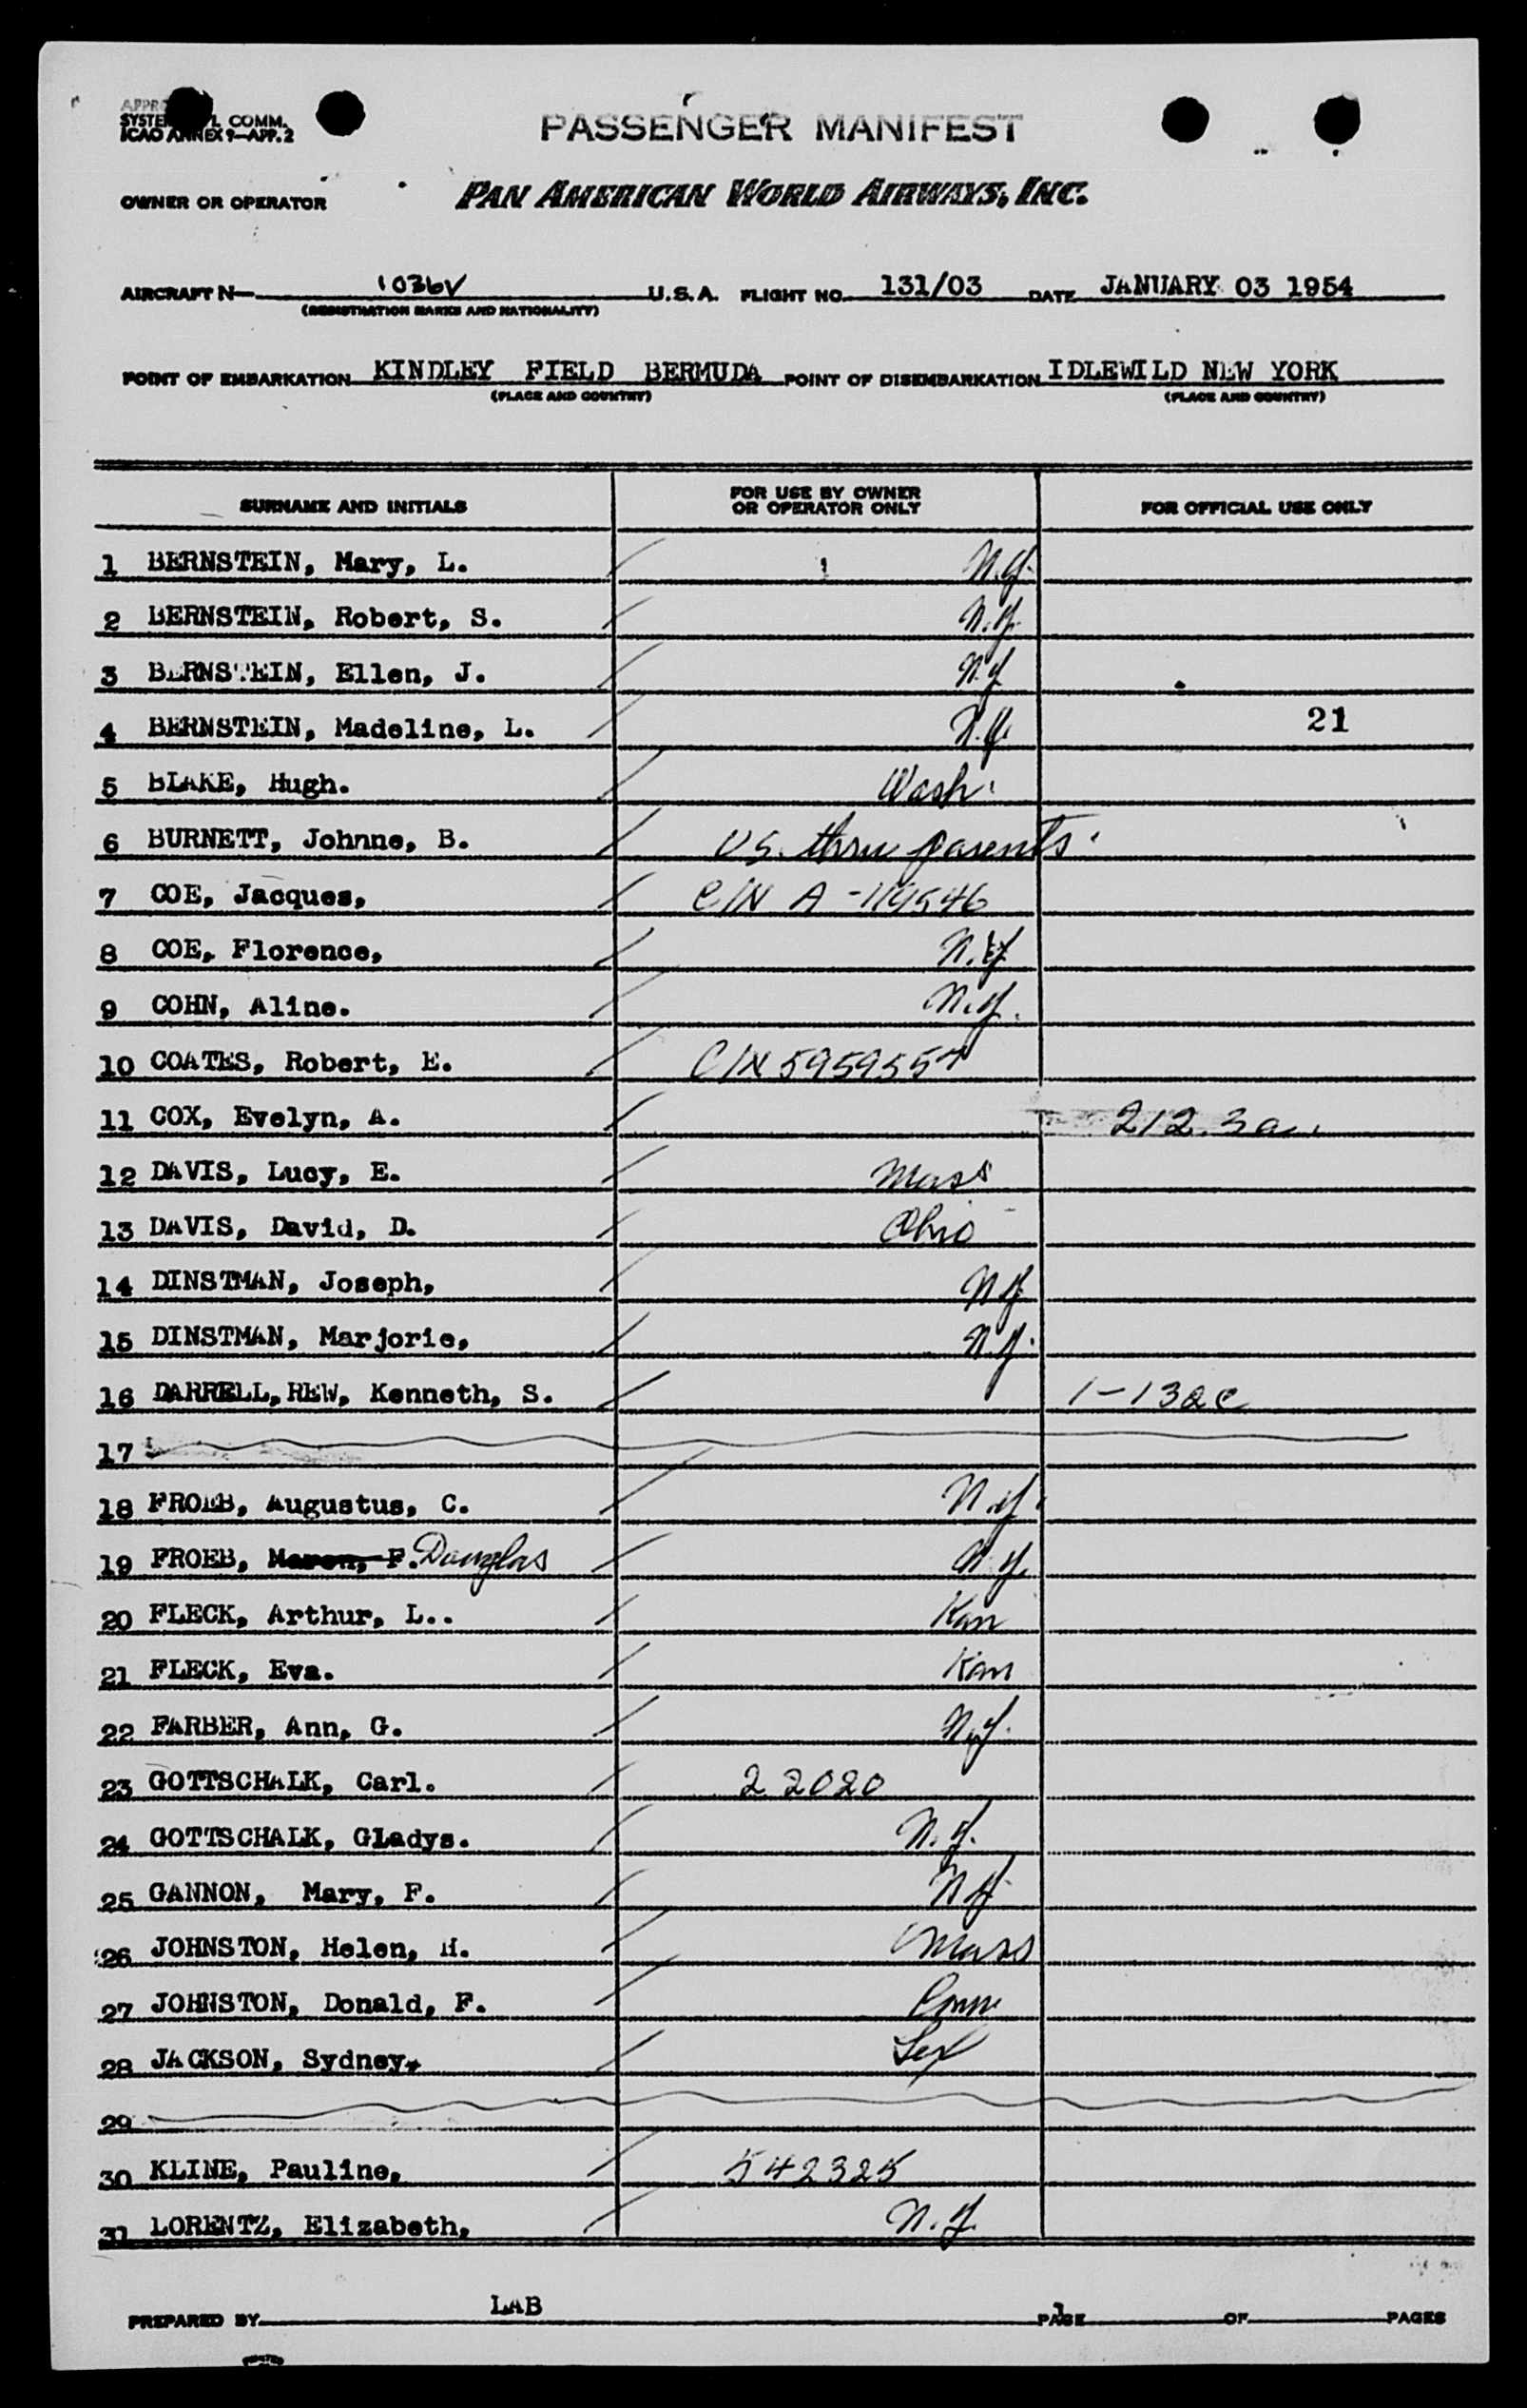 SYSTE L COMM.
ICAO ANNEX 9—APP. 2
PASSENGER MANIFEST
OWNER OR OPERATOR PAN AMERICAN WORLD AIRWAYS, INC.
AIRCRAFT N 1036V U.S.A. FLIGHT NO. 131/03 DATE JANUARY 03 1954
(REGISTRATION MARKS AND NATIONALITY)
POINT OF EMBARKATION KINDLEY FIELD BERMUDA POINT OF DISEMBARKATION IDLEWILD NEW YORK
(PLACE AND COUNTRY) (PLACE AND COUNTRY)
SURNAME AND INITIALS FOR USE BY OWNER OR OPERATOR ONLY FOR OFFICIAL USE ONLY
1 BERNSTEIN, Mary, L. / N.Y.
2 BERNSTEIN, Robert, S. / N.Y.
3 BERNSTEIN, Ellen, J. / N.Y
4 BERNSTEIN, Madeline, L. / N.Y. 21
5 BLAKE, Hugh. / Wash.
6 BURNETT, Johnne, B. / US. thru parents.
7 COE, Jacques, / C/N A-119546
8 COE, Florence, / N.Y
9 COHN, Aline. / N.Y.
10 COATES, Robert, E. / C/N 5959557
11 COX, Evelyn, A. / 212.3a
12 DAVIS, Lucy, E. / Mass
13 DAVIS, David, D. / Ohio
14 DINSTMAN, Joseph, / N.Y
15 DINSTMAN, Marjorie, / N.Y.
16 DARRELL, REW, Kenneth, S. / 1-13
17
18 FROEB, Augustus, C. / N.Y.
19 FROEB, Maron, F. Douglas / N.Y.
20 FLECK, Arthur, L.. / Kan
21 FLECK, Eva. / Kan
22 FARBER, Ann, G. / N.Y.
23 GOTTSCHALK, Carl. / 22020
24 GOTTSCHALK, Gladys. / N.Y.
25 GANNON, Mary, F. / N.Y
26 JOHNSTON, Helen, H. / Mass
27 JOHNSTON, Donald, F. / Conn
28 JACKSON, Sydney. /
29
30 KLINE, Pauline, / 542325
31 LORENTZ, Elizabeth, / N.Y.
PREPARED BY LAB PAGE 1 OF PAGES